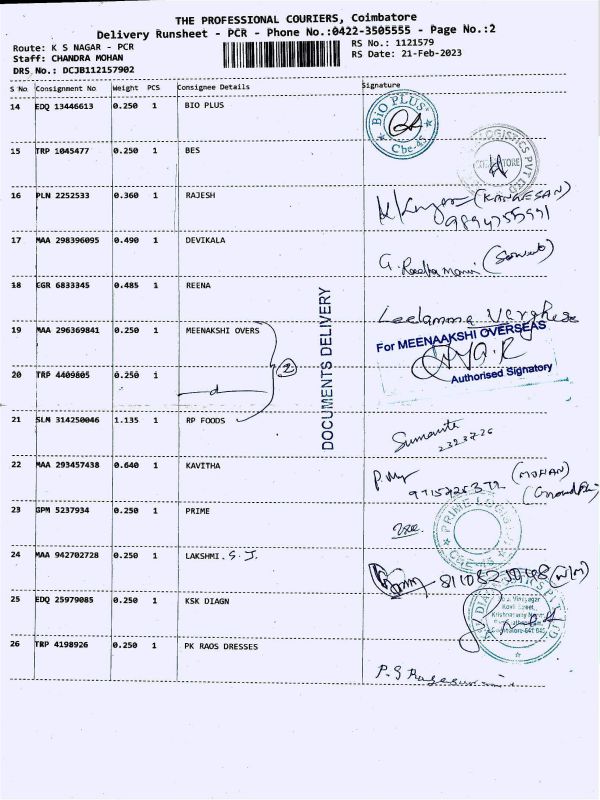 THE PROFESSIONAL COURIERS, Coimbatore
Delivery Runsheet - PCR - Phone No.:0422-3505555 - Page No.:2
Route: K S NAGAR - PCR
RS No.: 1121579
Staff: CHANDRA MOHAN
RS Date: 21-Feb-2023
DRS No.: DCJB112157902
S No Consignment No Weight PCS Consignee Details Signature
14 EDQ 13446613 0.250 1 BIO PLUS
BIO PLUS
Cbe-45
15 TRP 1045477 0.250 1 BES
LOGISTICS PVT LTD
16 PLN 2252533 0.360 1 RAJESH
(KANGESAN)
17 MAA 298396095 0.490 1 DEVIKALA
18 GGR 6833345 0.485 1 REENA
Leelamma Verghese
DOCUMENTS DELIVERY
19 MAA 296369841 0.250 1 MEENAKSHI OVERS
For MEENAAKSHI OVERSEAS
Authorised Signatory
2
20 TRP 4409805 0.250 1
21 SLM 314250046 1.135 1 RP FOODS
22 MAA 293457438 0.640 1 KAVITHA
(MOHAN)
23 GPM 5237934 0.250 1 PRIME
24 MAA 942702728 0.250 1 LAKSHMI. S. J.
25 EDQ 25979085 0.250 1 KSK DIAGN
26 TRP 4198926 0.250 1 PK RAOS DRESSES